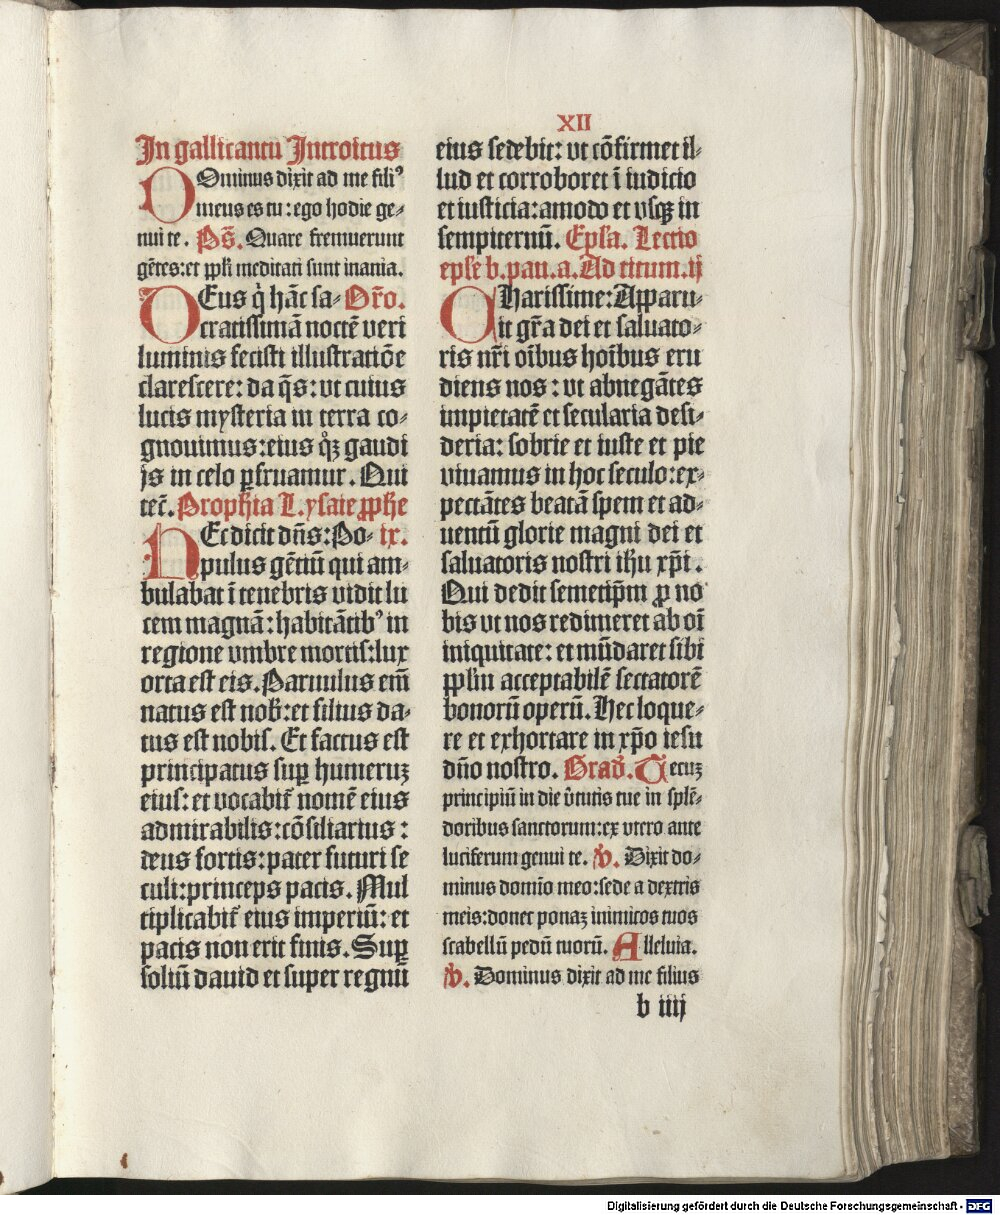 XII
In gallicantu Introitus
DOminus dixit ad me fili⁹
meus es tu: ego hodie ge-
nui te. Ps̄. Quare fremuerunt
gētes: et ppl̄i meditati sunt inania.
DEus q̇ hāc sa- Or̄o.
cratissimā noctē veri
luminis fecisti illustratiōe
clarescere: da q̄s: vt cuius
lucis mysteria in terra co-
gnouimus: eius qͦꝫ gaudi
js in celo ꝑfruamur. Qui
tec̄. Proph̄ia L. ysaie ꝓph̄e
HEc dicit dn̄s: Po- ix.
pulus gētiū qui am-
bulabat ī tenebris vidit lu
cem magnā: habitātib⁹ in
regione vmbre mortis: lux
orta est eis. Paruulus em̄
natus est nob̄: et filius da-
tus est nobis. Et factus est
principatus suꝑ humeruꝫ
eius: et vocabit᷑ nomē eius
admirabilis: cōsiliarius:
deus fortis: pater futuri se
culi: princeps pacis. Mul
tiplicabit᷑ eius imperiū: et
pacis non erit finis. Suꝑ
soliū dauid et super regnū
eius sedebit: vt cōfirmet il-
lud et corroboret ī iudicio
et iusticia: amodo et vsqꝫ in
sempiternū. Ep̄sa. Lectio
ep̄se b. pau. a. Ad titum. ij
CHarissime: Apparu-
it gr̄a dei et saluato-
ris nr̄i oībus hoībus eru
diens nos: vt abnegātes
impietatē et secularia desi-
deria: sobrie et iuste et pie
viuamus in hoc seculo: ex-
pectātes beatā spem et ad-
uentū glorie magni dei et
saluatoris nostri ihu xp̄i.
Qui dedit semetip̄m ꝓ no
bis vt nos redimeret ab oī
iniquitate: et mūdaret sibi
ppl̄m acceptabilē sectatorē
bonorū operū. Hec loque-
re et exhortare in xp̄o iesu
dn̄o nostro. Grad̄. Tecuꝫ
principiū in die v̇tutis tue in splē-
doribus sanctorum: ex vtero ante
luciferum genui te. ℣. Dixit do-
minus domīo meo: sede a dextris
meis: donec ponaꝫ inimicos tuos
scabellū pedū tuorū. Alleluia.
℣. Dominus dixit ad me filius
b iiij
Digitalisierung gefördert durch die Deutsche Forschungsgemeinschaft - DFG